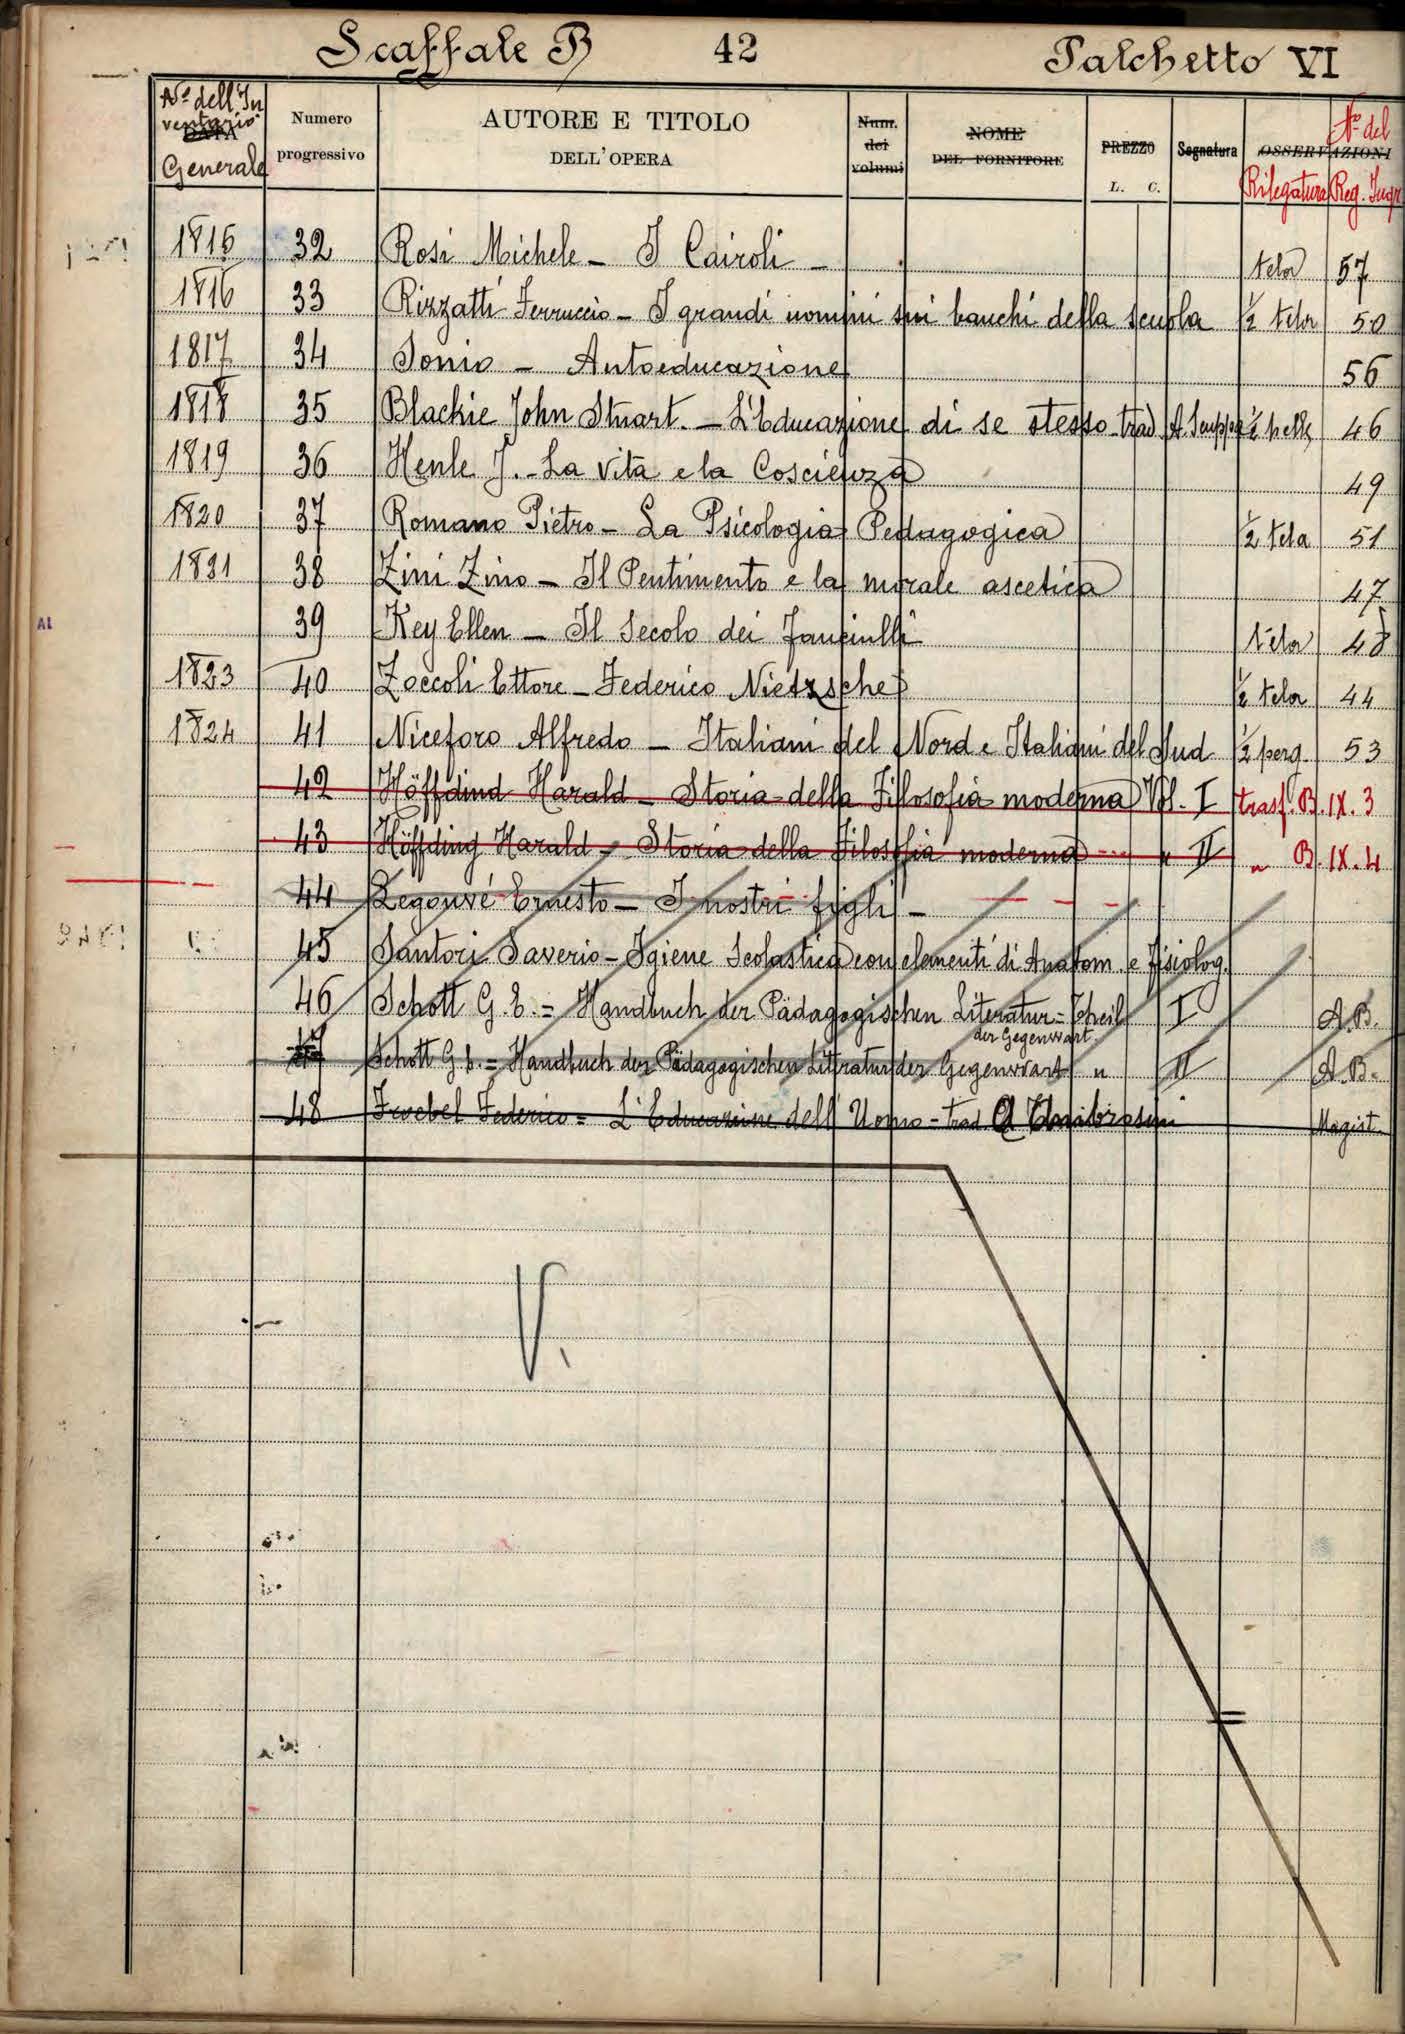 Scaffale B 42 Palchetto VI
N.o dell'In
ventario
DATA
Generale
Numero
progressivo
AUTORE E TITOLO
DELL'OPERA
Num.
dei
volumi
NOME
DEL FORNITORE
PREZZO
L. C.
Segnatura
OSSERVAZIONI
N.o del
Rilegatura Reg. Ingr.
1815 32 Rosi Michele - I Cairoli - tela 57
1816 33 Rizzatti Ferruccio - I grandi uomini sui banchi della scuola ½ tela 50
1817 34 Sonio - Autoeducazione 56
1818 35 Blackie John Stuart. - L'Educazione di se stesso - trad. A. ½ pelle 46
1819 36 Henle J. - La vita e la Coscienza 49
1820 37 Romano Pietro - La Psicologia Pedagogica ½ tela 51
1821 38 Zini Zino - Il Pentimento e la morale ascetica 47
39 Key Ellen - Il Secolo dei Fanciulli tela 48
AL
1823 40 Zoccoli Ettore - Federico Nietzsche ½ tela 44
1824 41 Niceforo Alfredo - Italiani del Nord e Italiani del Sud ½ perg. 53
42 Höffdind Harald - Storia della Filosofia moderna Vol. I trasf. B. IX. 3
43 Höffding Harald - Storia della Filosofia moderna " II " B. IX. 4
44 Legouvé Ernesto - I nostri figli -
45 Santori Saverio - Igiene Scolastica con elementi di Anatom. e Fisiolog.
46 Schott G. E. = Handbuch der Pädagogischen Literatur = Theil I A.B.
der Gegenwart.
47 Schott G. E. = Handbuch der Pädagogischen Litteratur der Gegenwart " II A.B.
48 Froebel Federico = L'Educazione dell'Uomo - trad. A Ambrosini Magist.
V.